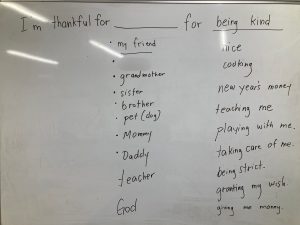 I m thankful for ________ for being kind
• my friend nice
• cooking
• grandmother new year's money
• sister teaching me
• brother playing with me.
• pet (dog) taking care of me.
• Mommy being strict.
• Daddy granting my wish.
teacher giving me money.
God